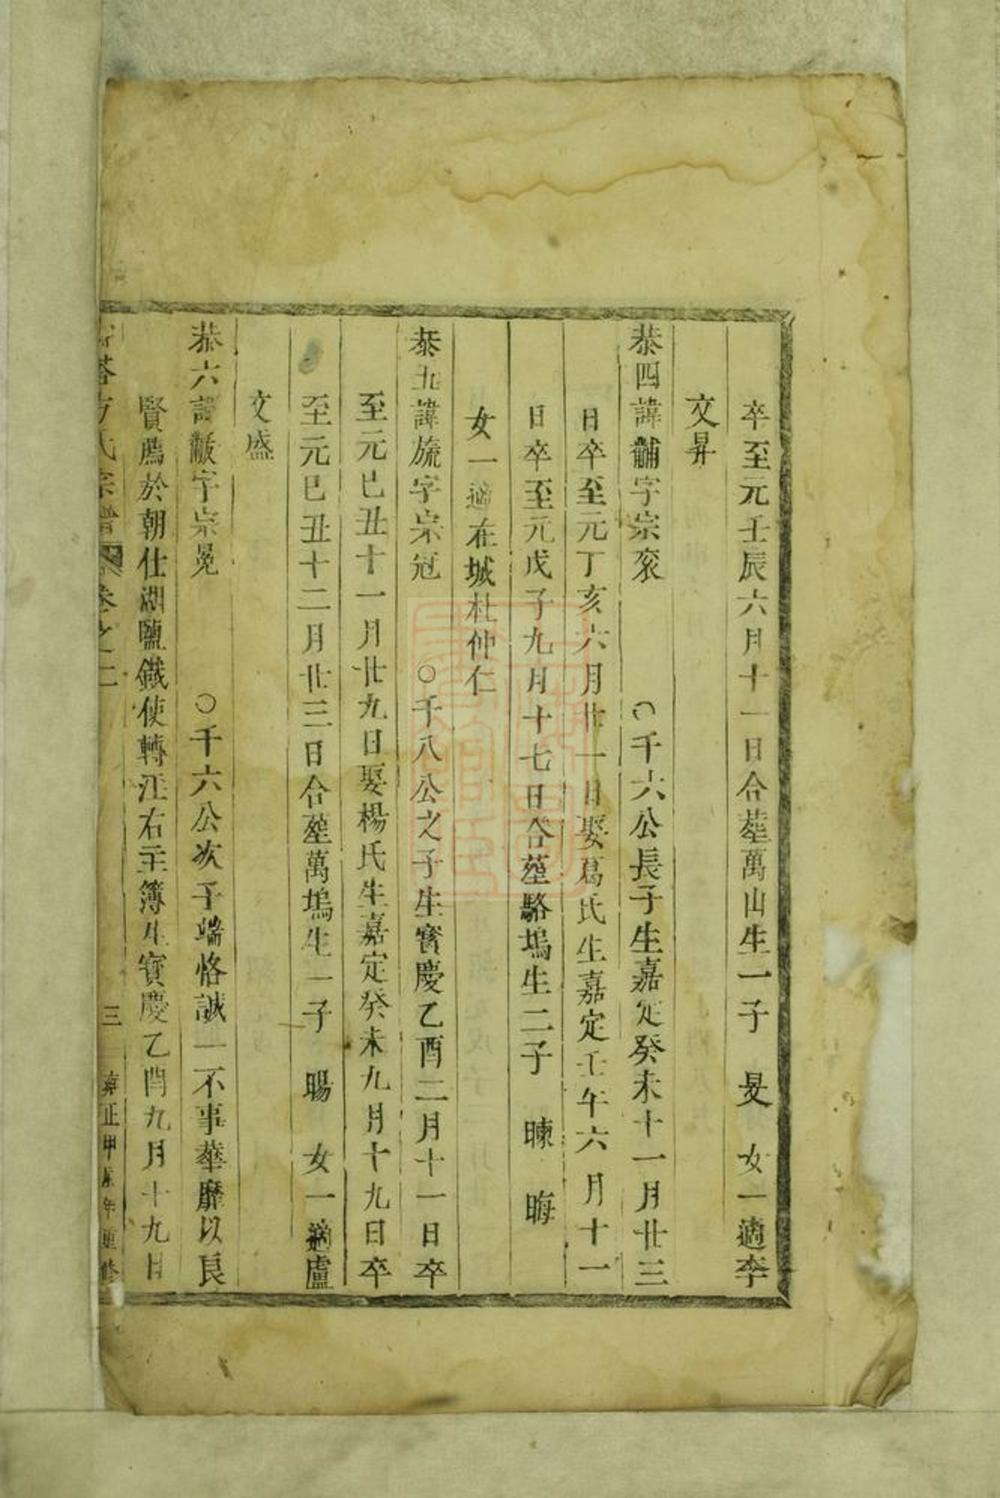 卒至元壬辰六月十一日合塟萬山生一子 旻 女一適李
文昇
恭四諱黼字宗衮 ○千六公長子生嘉定癸未十一月廿三
日卒至元丁亥六月廿一日娶葛氏生嘉定壬午六月十一
日卒至元戊子九月十七日合塟駱塢生二子 暕 晦
女一適在城杜仲仁
恭五諱旒字宗冠 ○千八公之子生寳慶乙酉二月十一日卒
至元已丑十一月廿九日娶楊氏生嘉定癸未九月十九日卒
至元已丑十二月廿三日合塟萬塢生一子 暘 女一適盧
文盛
恭六諱黻字宗冕 ○千六公次子端恪誠一不事華靡以良
賢薦於朝仕湖鹽鐵使轉江右主簿生寳慶乙酉九月十九日
方氏宗譜 卷之二 三 雍正甲辰年重修